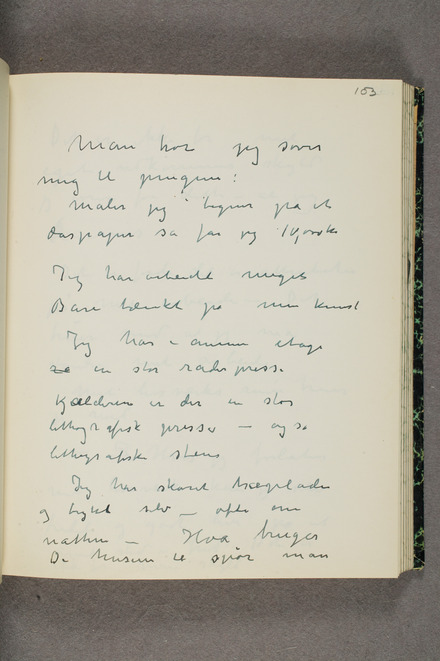 103
Man tror jeg sover
mig til pengene:
Maler jeg tegner på et
daspapir så får jeg 10,000 kr
Jeg har arbeidet meget
Bare tænkt på min kunst
Jeg har i annen etage
en stor raderpresse
Kjælderen er der en stor
lithografisk presse – og så
lithografiske stene
Jeg har skåret træplader
og trykt selv – ofte om
natten – Hvad bruger
De husene til spør man